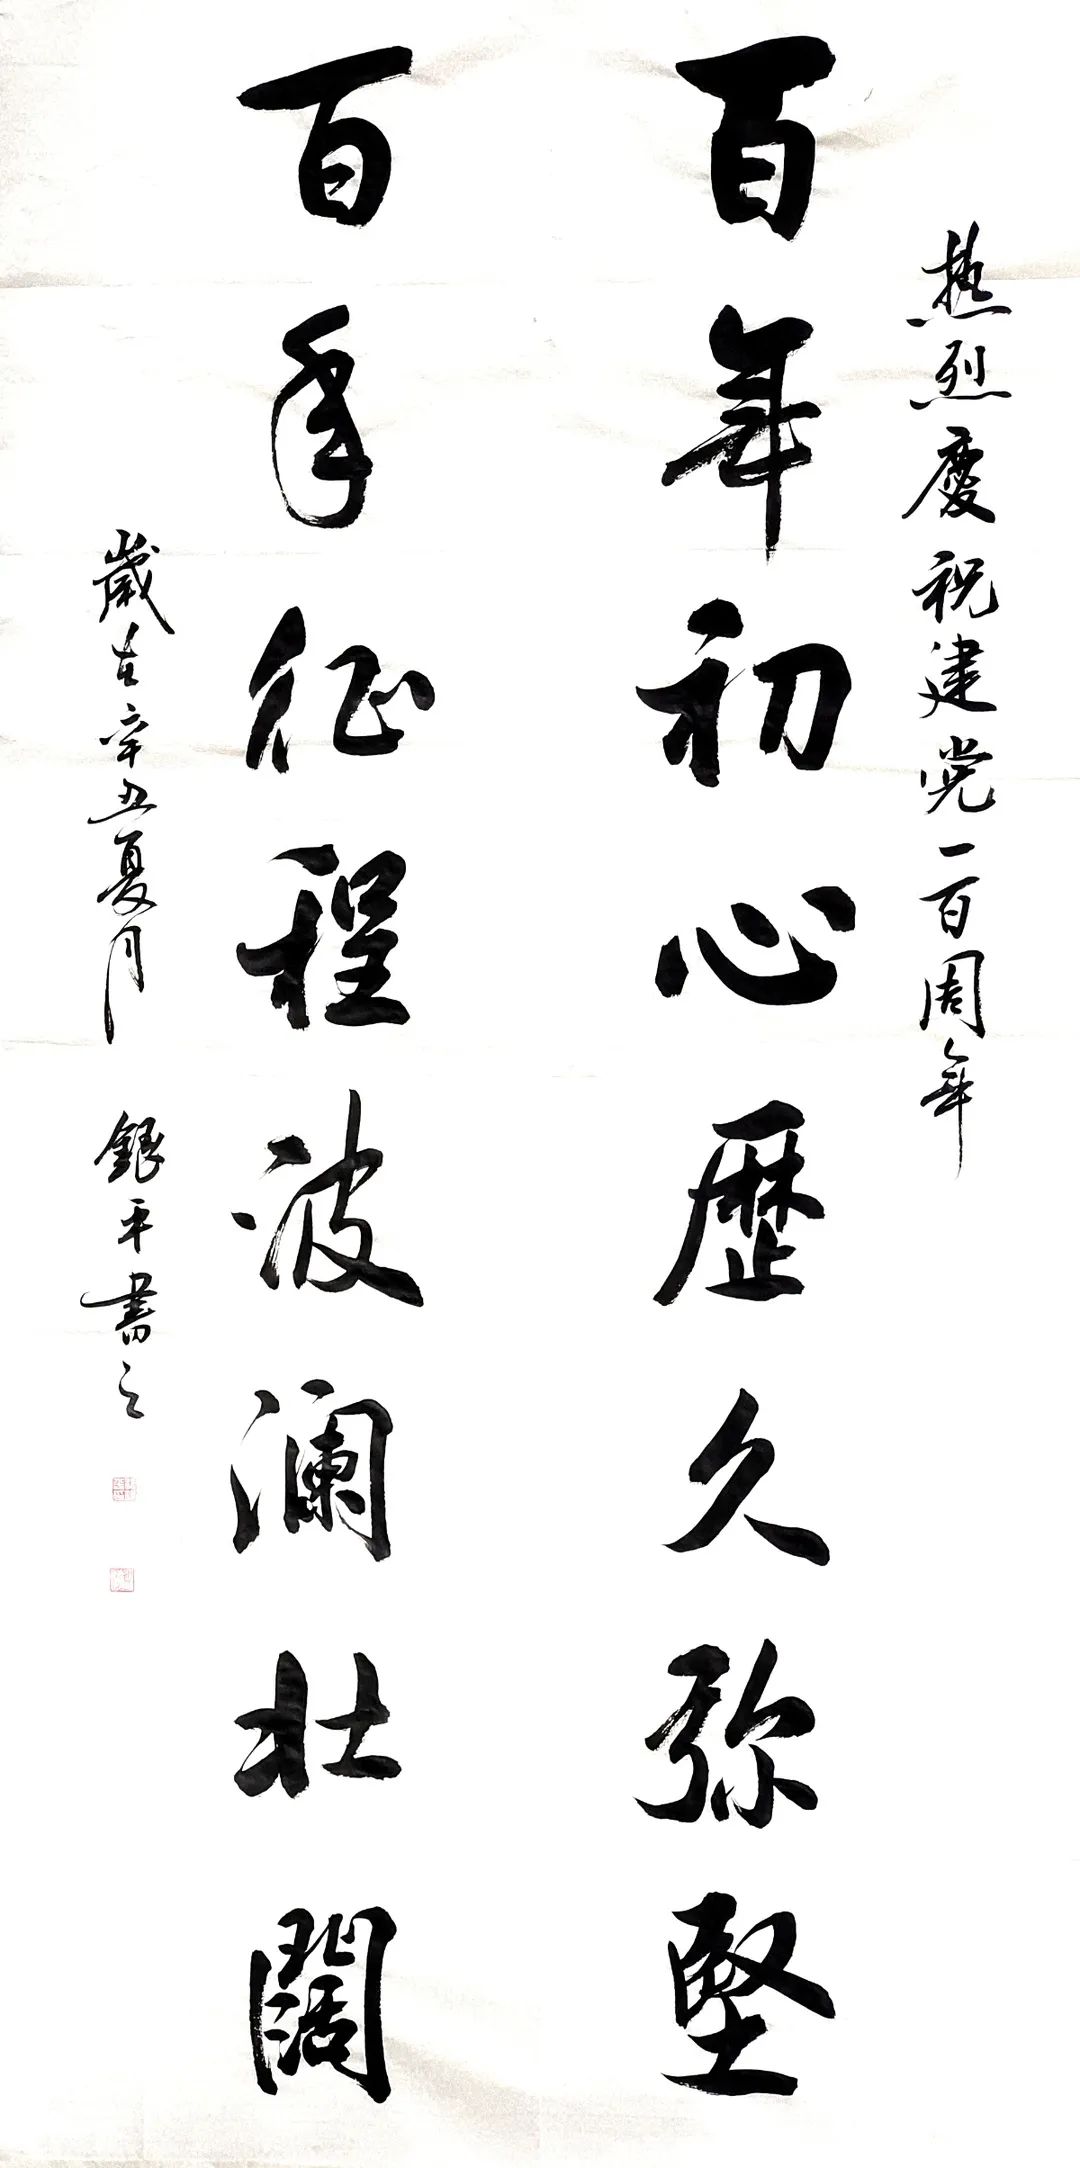 熱烈慶祝建党一百周年
百年初心歷久弥堅
百年征程波澜壮闊
歲在辛丑夏月 銀平書之